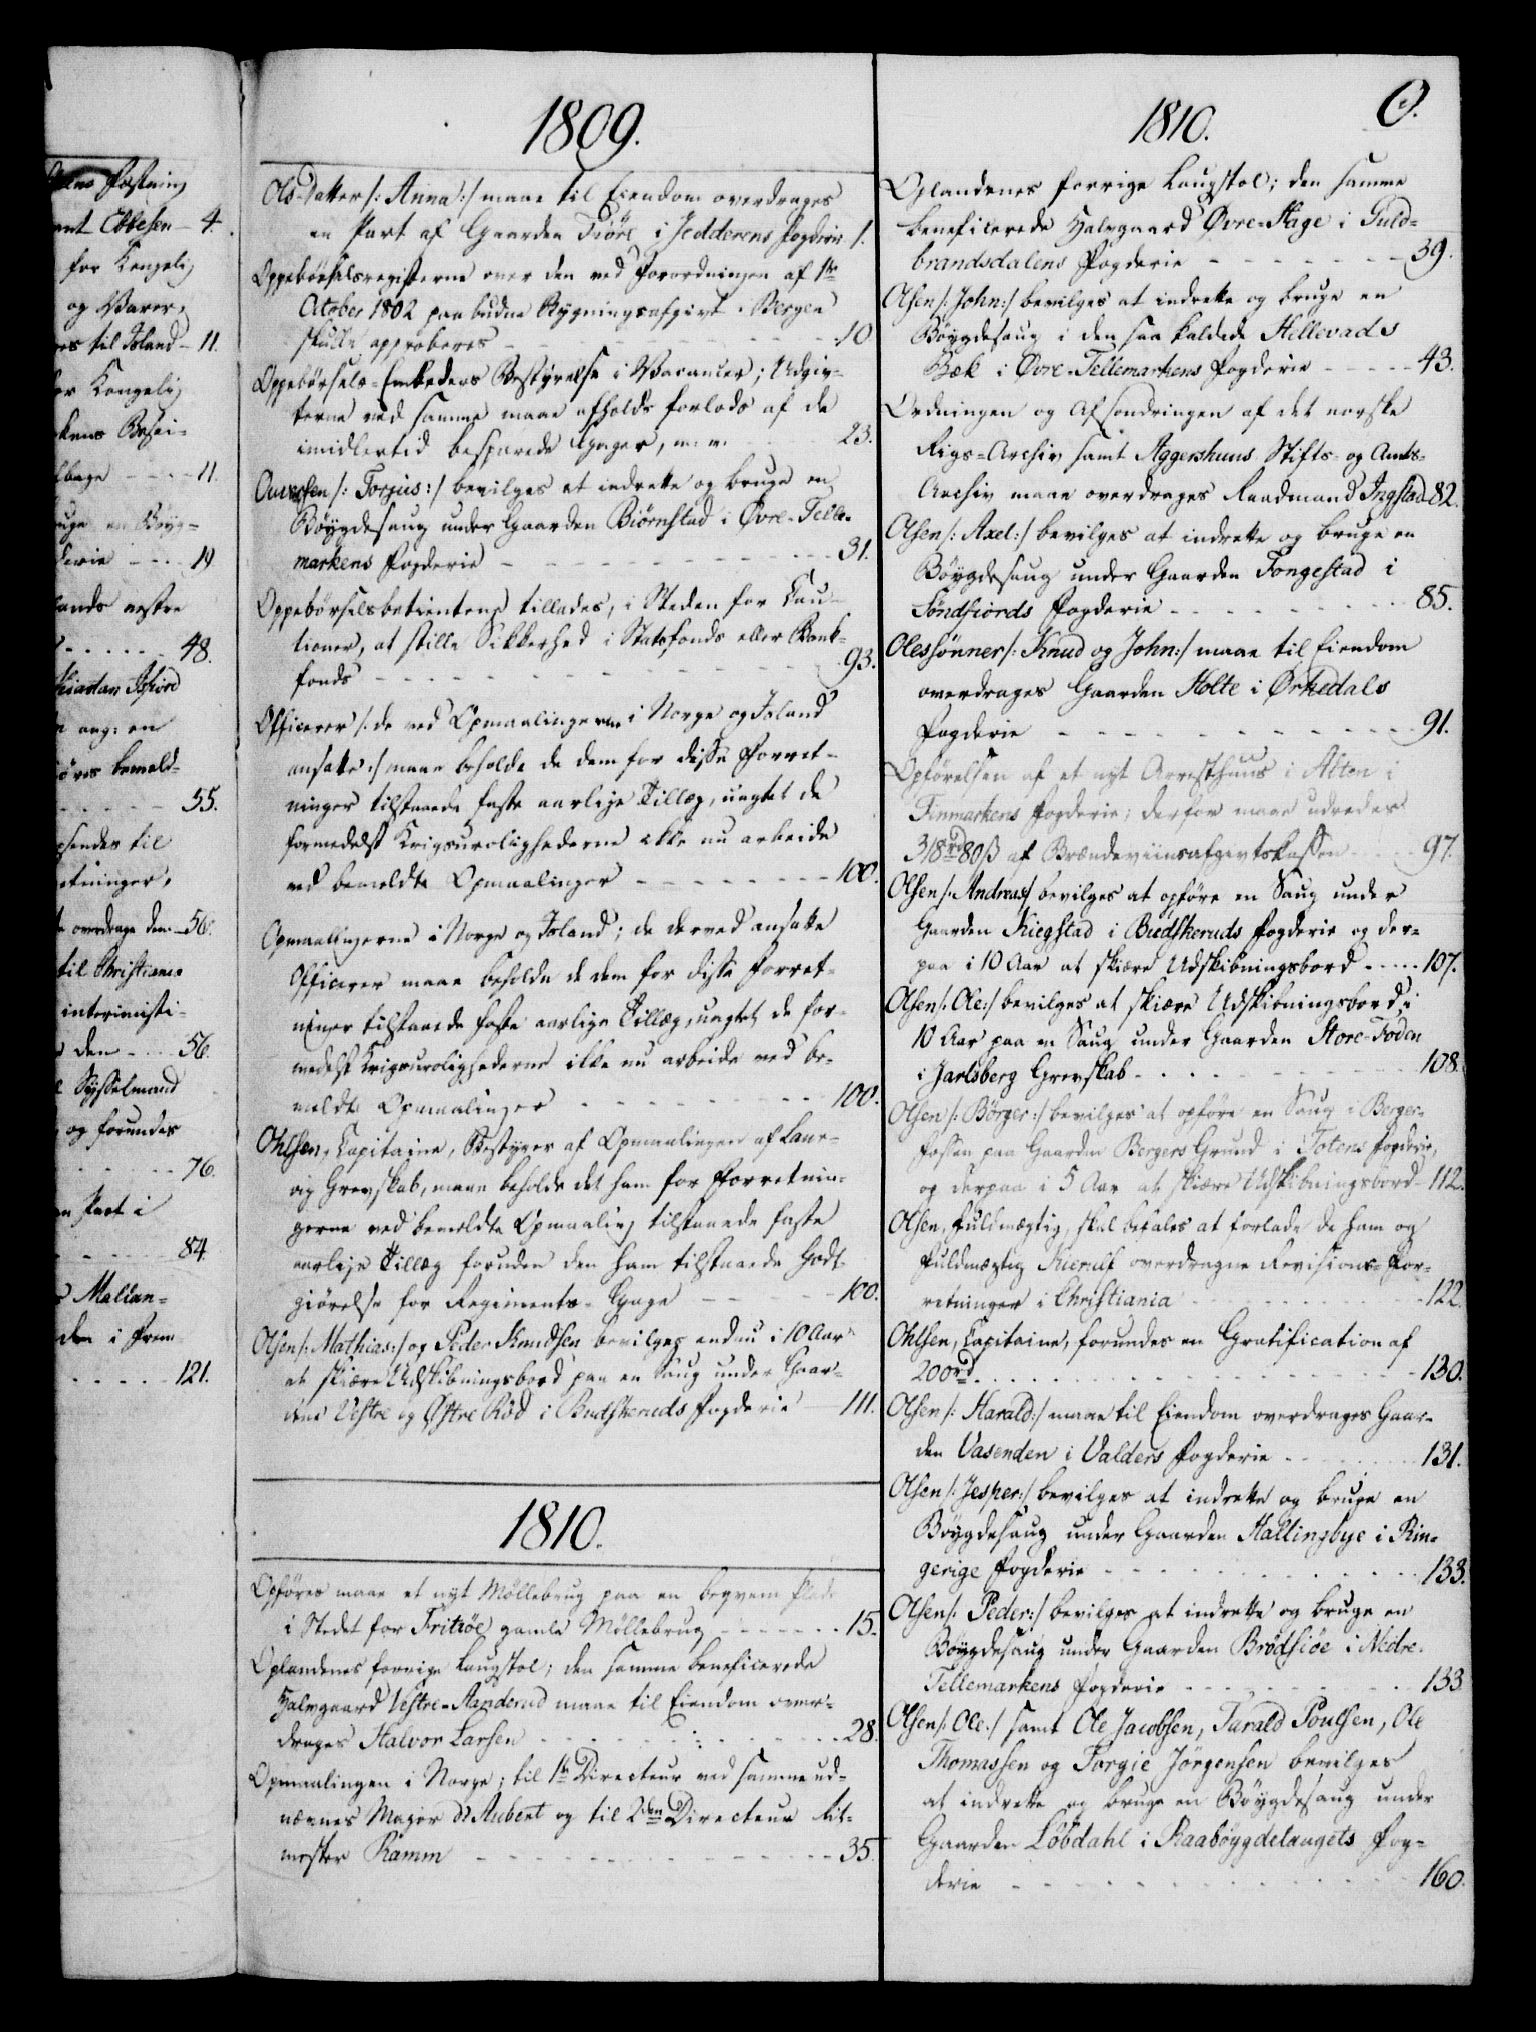 ens Fæstning
ant Ebbesen - 4.
for Kongelig
og Varer,
es til Island - 11.
for Kongelig
kens Besei-
lbage - - - 11.
uge en Bøyg-
derie - - - 19
lands nestre
- - - - - 48.
Kiartan Isfiord
ang: en
øres bemeld-
- - - - - 55.
sendes til
etninger,
overdrage dem - 56.
til Christiania
interimisti-
den - - - 56.
Sysselmand
og forundes
- - - - - 76.
n Part i
- - - - - 84.
Malian-
den i From-
- - - - - 121.
1809.
Ols-datter /: Anna :/ maae til Eiendom overdrages
en Part af Gaarden Friöre i Jedderens Fogderie 1.
Oppebörselsregisterne over den ved Forordningen af 1ste
October 1802 paabudne Bygningsafgivt i Bergen
skulle approberes - - - - - - 10
Oppebörsels-Embeders Bestyrelse i Vacancer; Udgiv-
terne ved samme maae afholds forlods af de
imidlertid besparede Gager, m. m. - - - 23.
/: Torjus :/ bevilges at indrette og bruge en
Böygdesaug under Gaarden Biörnstad i Øvre-Telle-
markens Fogderie - - - - - - 31.
Oppebörselsbetientene tillades, i Steden for Cau-
tioner, at stille Sikkerhed i Statsfonds eller Bank-
fonds - - - - - - 93.
Officerer /: de ved Opmaalingerne i Norge og Island
ansatte :/ maae beholde de dem for disse Forret-
ninger tilstaaede faste aarlige Tillæg, uagtet de
formedelst Krigsurolighederne ikke nu arbeide
ved bemeldte Opmaalinger - - - - - - 100.
Opmaalingerne i Norge og Island; de derved ansatte
Officerer maae beholde de dem for disse Forret-
ninger tilstaaede faste aarlige Tillæg, uagtet de for-
medelst Krigsurolighederne ikke nu arbeide ved be-
meldte Opmaalinger - - - - - - 100.
Ohlsen, Capitaine, Bestyrer af Opmaalingen af Laur-
vig Grevskab, maae beholde det ham for Forretnin-
gerne ved bemeldte Opmaaling tilstaaede faste
aarlige Tillæg foruden den ham tilstaaede Godt-
giörelse for Regiments-Gage - - - 100.
Olsen /: Mathias :/ og Peder Knudsen bevilges endnu i 10 Aar
at skiære Udskibningsbord paa en Saug under Gaar-
dene Vestre og Østre Röd i Budskeruds Fogderie 111.
1810.
Opföres maae et nyt Möllebrug paa en beqvem Plads
i Stedet for Fritzöe gamle Möllebrug - - - - - - 15.
Oplandenes forrige Laugstol; den samme beneficerede
Halvgaard Vestre-Aanderud maae til Eiendom over-
drages Halvor Larsen - - - - - - 28.
Opmaalingen i Norge; til 1ste Directeur ved samme ud-
nævnes Major d'Aubert og til 2den Directeur Rit-
mester Ramm - - - - - - 35.
1810. O.
Oplandenes forrige Laugstol; den samme
beneficerede Halvgaard Øvre-Hage i Guld-
brandsdalens Fogderie - - - - - - 39.
Olsen /: John :/ bevilges at indrette og bruge en
Böygdesaug i den saa kaldede Hellevads
Bæk i Øvre-Tellemarkens Fogderie - - - - - 43.
Ordningen og Afsondringen af det norske
Rigs-Archiv samt Aggershuus Stifts- og Amts-
Archiv maae overdrages Raadmand Ingstad 82.
Olsen /: Axel :/ bevilges at indrette og bruge en
Böygdesaug under Gaarden Tongestad i
Söndfiords Fogderie - - - - - - 85.
Olessönner /: Knud og John :/ maae til Eiendom
overdrages Gaarden Holte i Ørkedals
Fogderie - - - - - - 91.
Opförelsen af et nyt Arresthuus i Alten i
Finmarkens Fogderie; derfor maae udredes
318rd 80ß af Brændeviinsafgivtskassen - - - 97.
Olsen /: Andreas :/ bevilges at opföre en Saug under
Gaarden Kiegstad i Budskeruds Fogderie og der-
paa i 10 Aar at skiære Udskibningsbord - - - - - 107.
Olsen /: Ole :/ bevilges at skiære Udskibningsbord i
10 Aar paa en Saug under Gaarden Store-Foden
i Jarlsberg Grevskab - - - - - - 108.
Olsen /: Börger :/ bevilges at opföre en Saug i Berger-
fossen paa Gaarden Bergers Grund i Totens Fogderie,
og derpaa i 5 Aar at skiære Udskibningsbord - 112.
Olsen, Fuldmægtig, skal befales at forlade de ham og
Fuldmægtig Kierulf overdragne Revisions-For-
retninger i Christiania - - - - - - 122.
Ohlsen, Capitaine, forundes en Gratification af
200rd - - - - - - 130.
Olsen /: Harald :/ maae til Eiendom overdrages Gaar-
den Vasenden i Valders Fogderie - - - - - - 131.
Olsen /: Jesper :/ bevilges at indrette og bruge en
Böygdesaug under Gaarden Hallingbye i Rin-
gerige Fogderie - - - - - - 133.
Olsen /: Peder :/ bevilges at indrette og bruge en
Böygdesaug under Gaarden Brödsiöe i Nedre-
Tellemarkens Fogderie - - - - - - 133
Olsen /: Ole :/ samt Ole Jacobsen, Tarald Poulsen, Ole
Thomassen og Torgie Jörgensen bevilges
at indrette og bruge en Böygdesaug under
Gaarden Löbdahl i Raabøygdelaugets Fog-
derie - - - - - - 160.